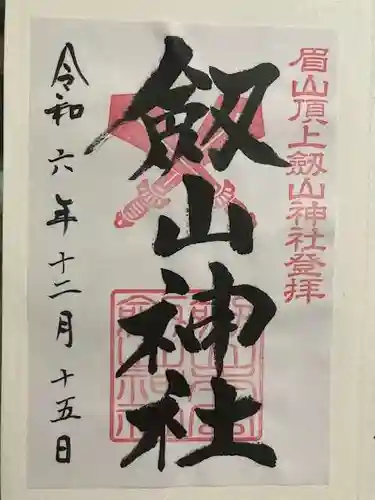 眉山頂上劔山神社登拝
劔山神社
令和六年十二月十五日